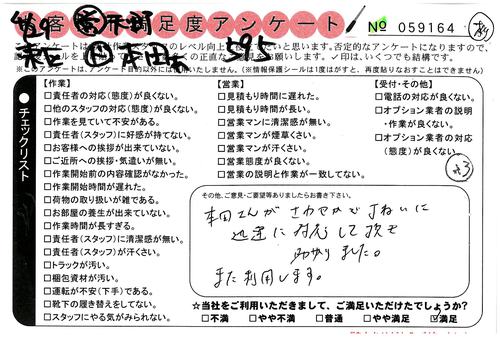 お客様不満足度アンケート
№ 059164
595
本田
アンケートは
スタッフのレベル向上
と思います。否定的なアンケートになりますので、
✓印は、いくつでも結構です。
※このアンケートは、アンケート目的以外には使用いたしません。(※情報保護シールは1度はがすと、再度貼りなおすことはできません)
●チェックリスト
【作業】
□責任者の対応(態度)が良くない。
□他のスタッフの対応(態度)が良くない。
□作業を見ていて不安がある。
□責任者(スタッフ)に好感が持てない。
□お客様への挨拶が出来ていない。
□ご近所への挨拶・気遣いが無い。
□作業開始前の内容確認がなかった。
□作業開始時間が遅れた。
□荷物の取り扱いが雑である。
□お部屋の養生が出来ていない。
□作業時間が長すぎる。
□責任者(スタッフ)に清潔感が無い。
□責任者(スタッフ)が汗くさい。
□トラックが汚い。
□梱包資材が汚い。
□運転が不安(下手)である。
□靴下の履き替えをしてない。
□スタッフにやる気がみられない。
【営業】
□見積もり時間に遅れた。
□見積もり時間が長い。
□営業マンに清潔感が無い。
□営業マンが煙草くさい。
□営業マンが汗くさい。
□営業態度が良くない。
□営業の説明と作業が一致してない。
【受付・その他】
□電話の対応が良くない。
□オプション業者の説明
・作業が良くない。
□オプション業者の対応
(態度)が良くない。
その他、ご意見・ご要望等ありましたらお書き下さい。
本田さんがさわやかで丁ねいに
迅速に対応して頂き
助かりました。
また利用します。
☆当社をご利用いただきまして、ご満足いただけたでしょうか?
□不満 □やや不満 □普通 □やや満足 ☑満足